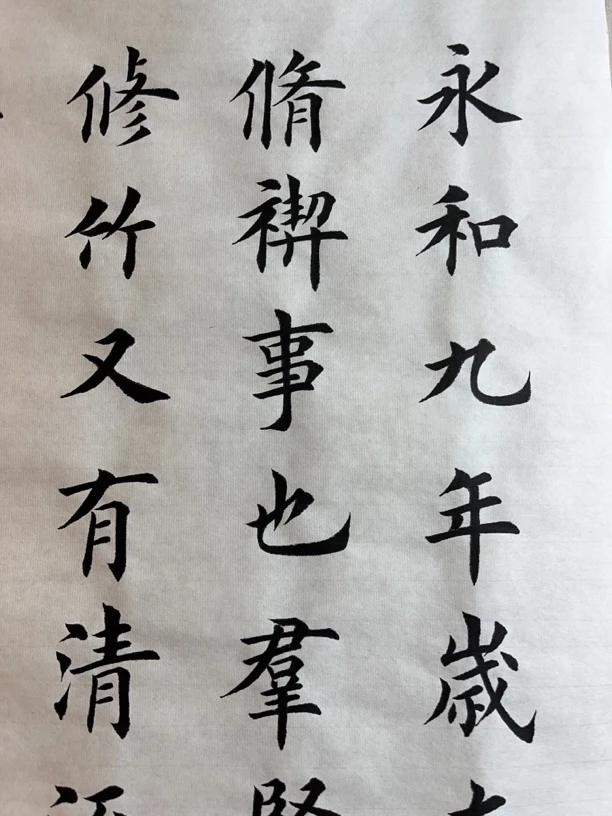 永和九年歲
脩禊事也羣
修竹又有清